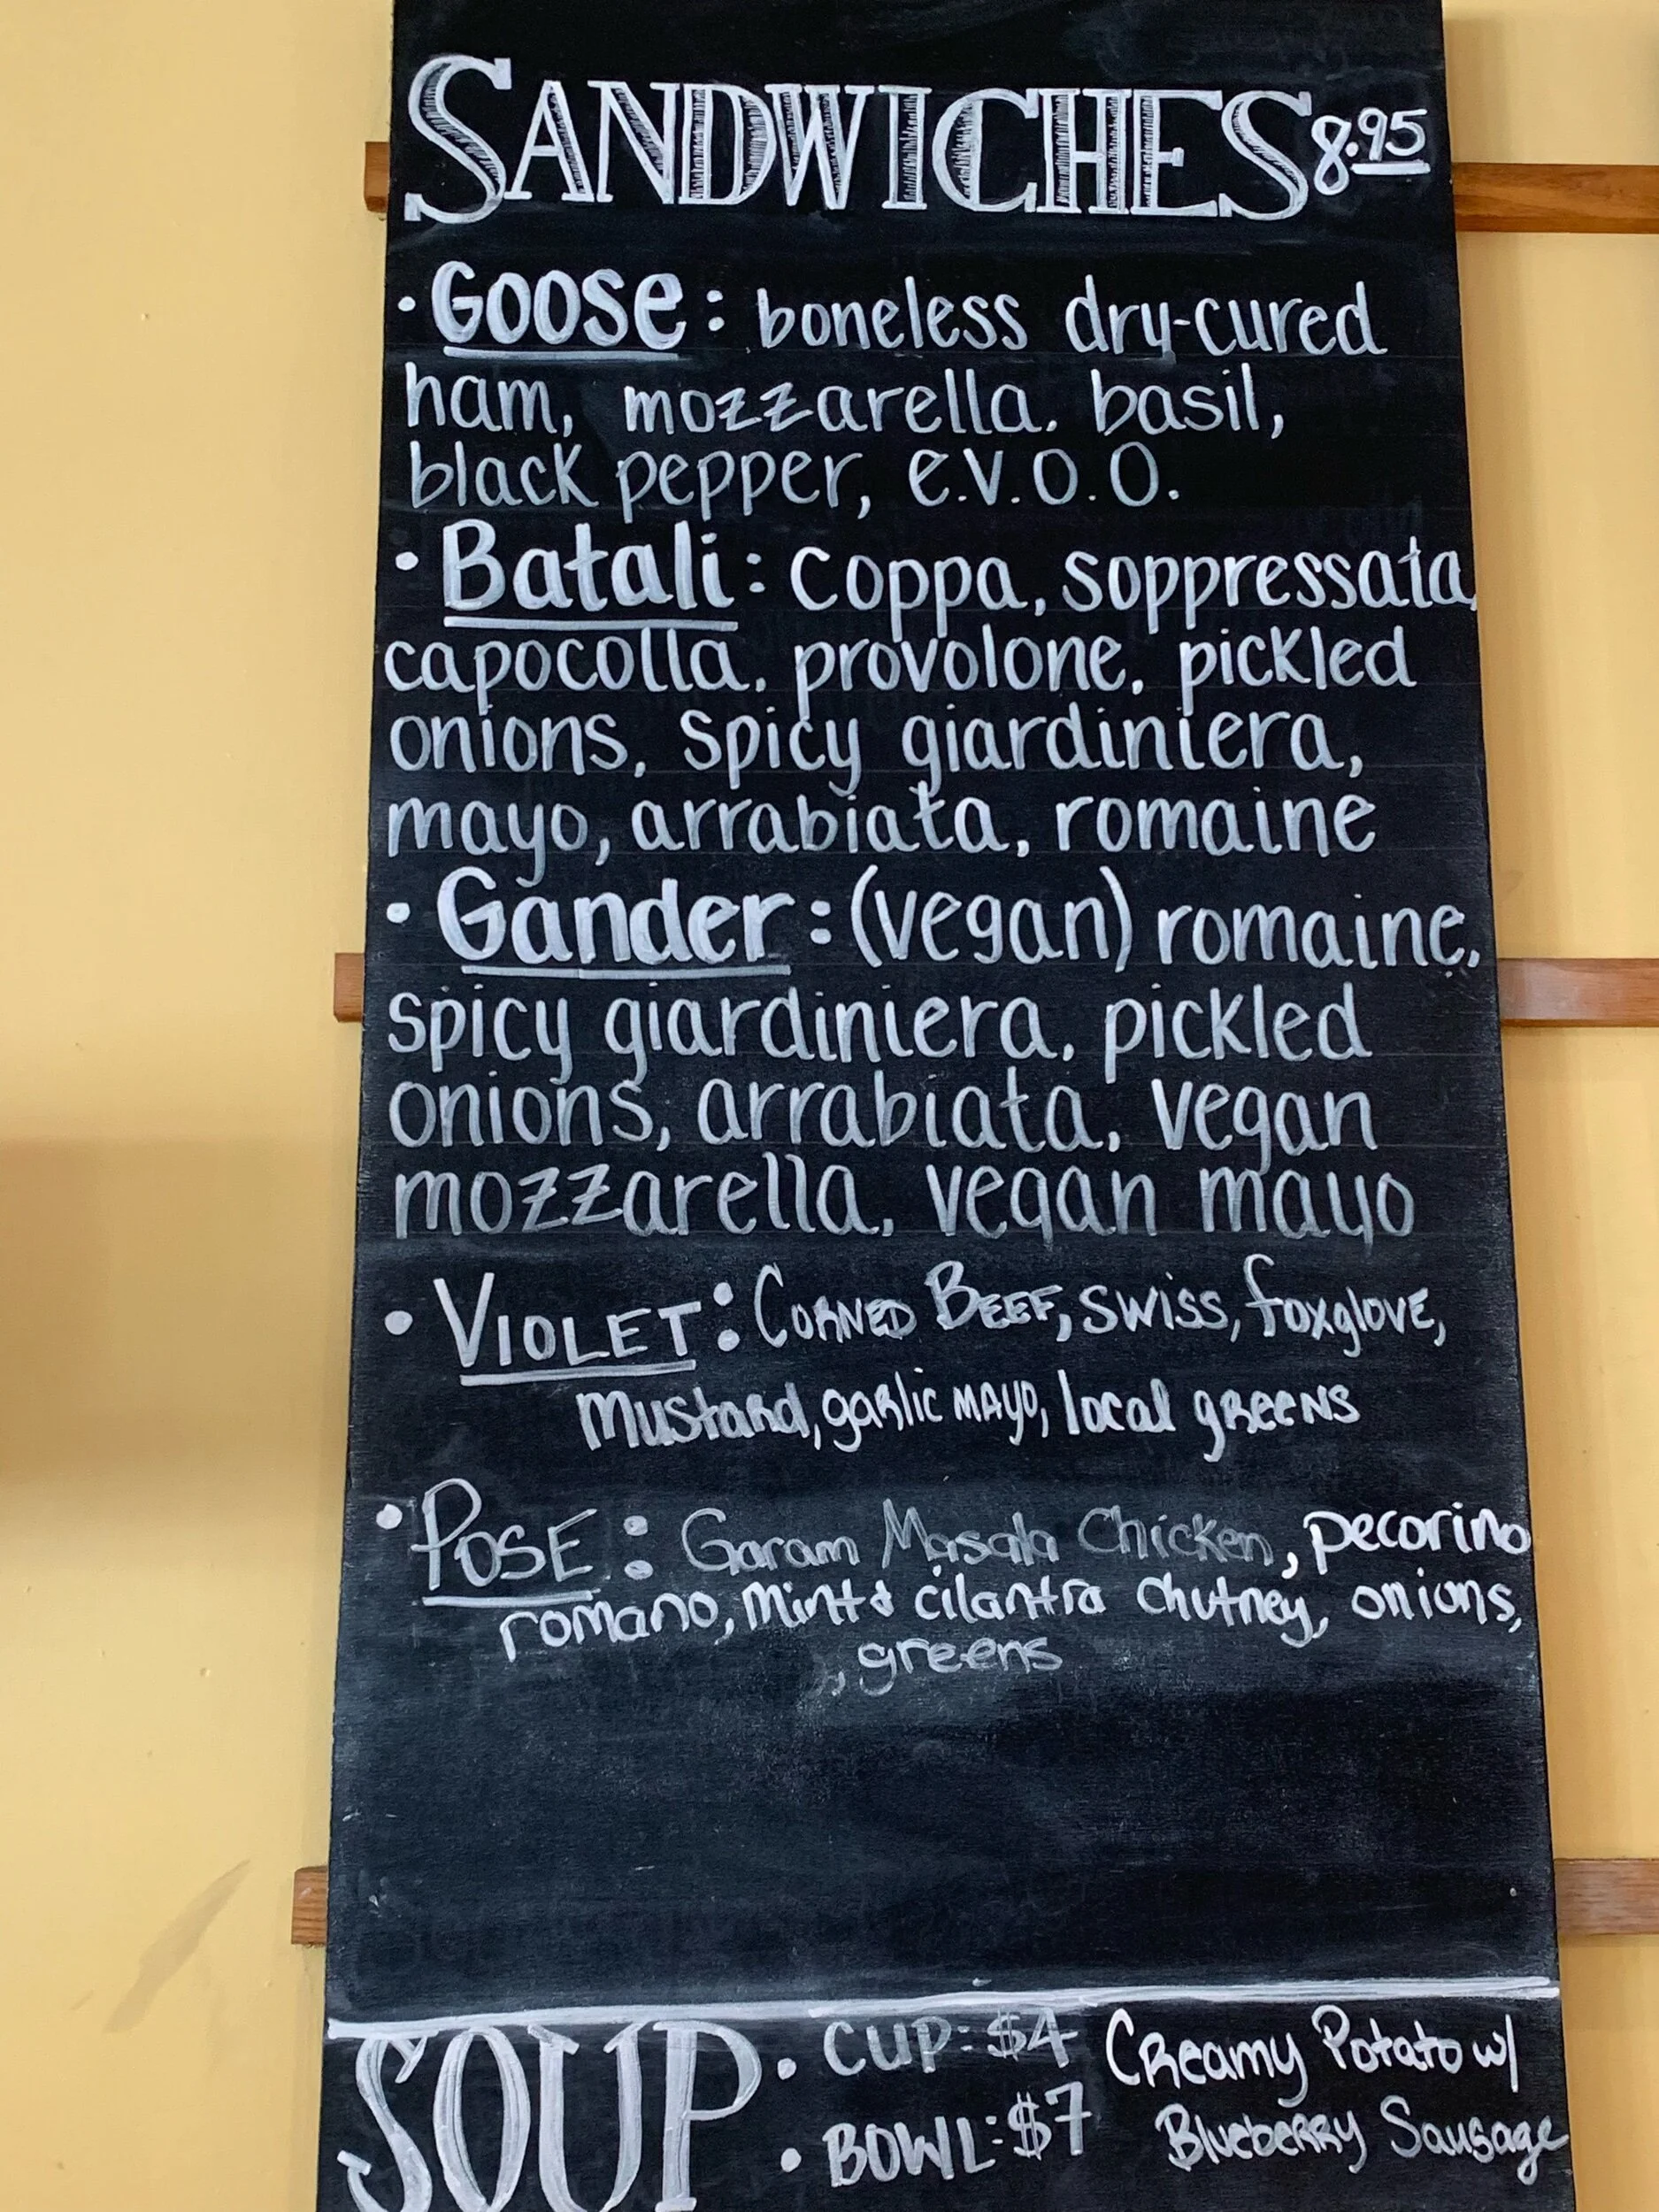 SANDWICHES 8.95
• Goose: boneless dry-cured
ham, mozzarella. basil,
black pepper, e.v.o.o.
• Batali: Coppa, soppressata,
capocolla, provolone, pickled
onions, spicy giardiniera,
mayo, arrabiata, romaine
• Gander: (vegan) romaine,
spicy giardiniera, pickled
onions, arrabiata, vegan
mozzarella, vegan mayo
• VIOLET: CORNED BEEF, SWISS, foxglove,
Mustard, garlic MAYO, local greens
• POSE: Garam Masala Chicken, pecorino
romano, Mint & cilantra Chutney, onions,
, greens
SOUP • CUP: $4 Creamy Potato w/
• BOWL: $7 Blueberry Sausage